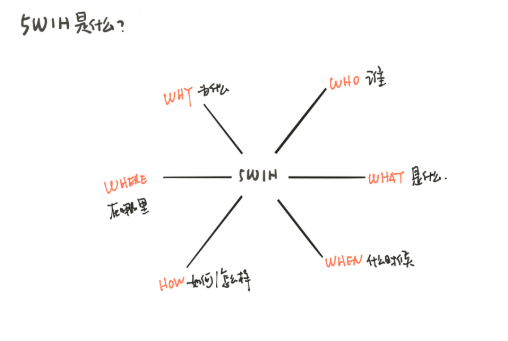 5W1H是什么?
WHY 为什么
WHO 谁
WHERE
在哪里
5W1H
WHAT 是什么.
HOW 如何/怎么样
WHEN 什么时候